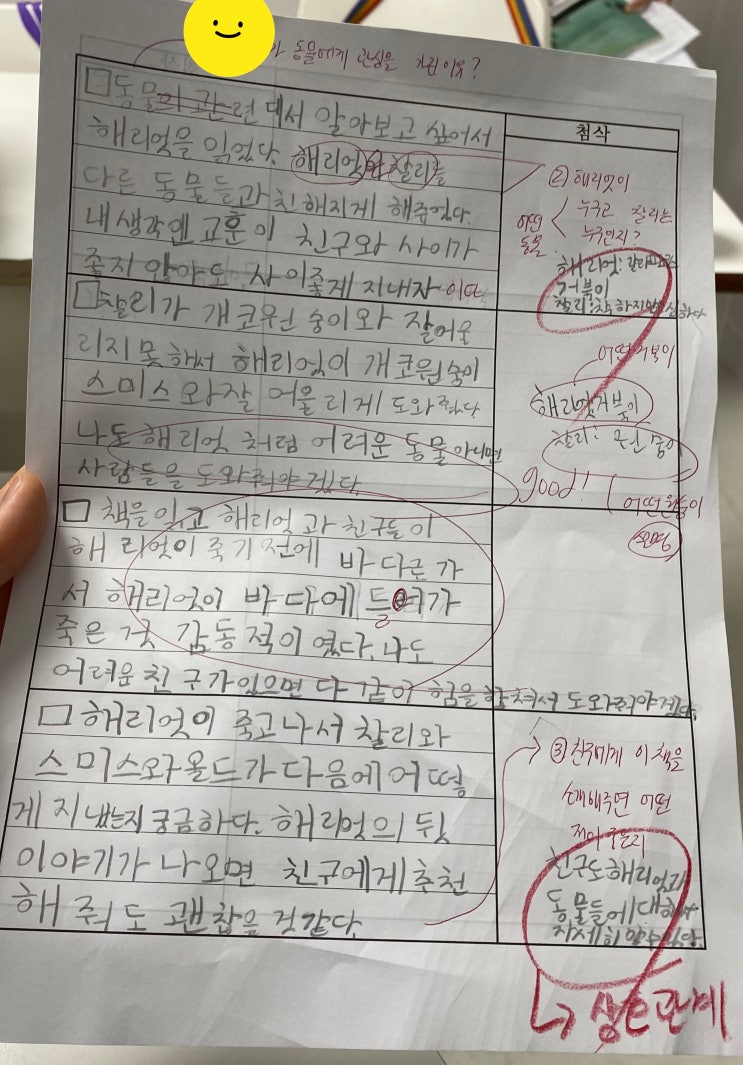 동물에게 관심을 가진 이유?
첨삭
□동물의 관련 대서 알아보고 싶어서
해리엇을 읽었다. 해리엇와 찰리를
다른 동물들과 친해지게 해주었다.
내 생각엔 교훈이 친구와 사이가
좋지 안아도 사이좋게 지내자 이다
② 해리엇이
누구고 찰리는
누구인지?
어떤
동물
해리엇:
거북이
□찰리가 개코원숭이와 잘어울
리지못해서 해리엇이 개코원숭이
스미스와잘 어울리게 도와줬다.
나도 해리엇 처럼 어려운 동물아니면
사람들을 도와줘야겠다.
어떤거북이
해리엇거북이
찰리: 원숭이
good!
어떤원숭이
설명
□ 책을 읽고 해리엇과 친구들이
해리엇이 죽기전에 바다근가
서 해리엇이 바다에 들어가
죽은 것 감동적이였다. 나도
어려운 친구가있으면 다 같이 힘을 합쳐서 도와줘야겠다.
□해리엇이 죽고나서 찰리와
스미스와올드가 다음에 어떻
게 지냈는지 궁금하다. 해리엇의 뒷
이야기가 나오면 친구에게 추천
해 줘도 괜찮을 것같다.
③ 친구에게 이 책을
소개해주면 어떤
점이 좋은지
친구도 해리엇과
동물들에 대해서
자세히 알수있다.
↳ 생존관계